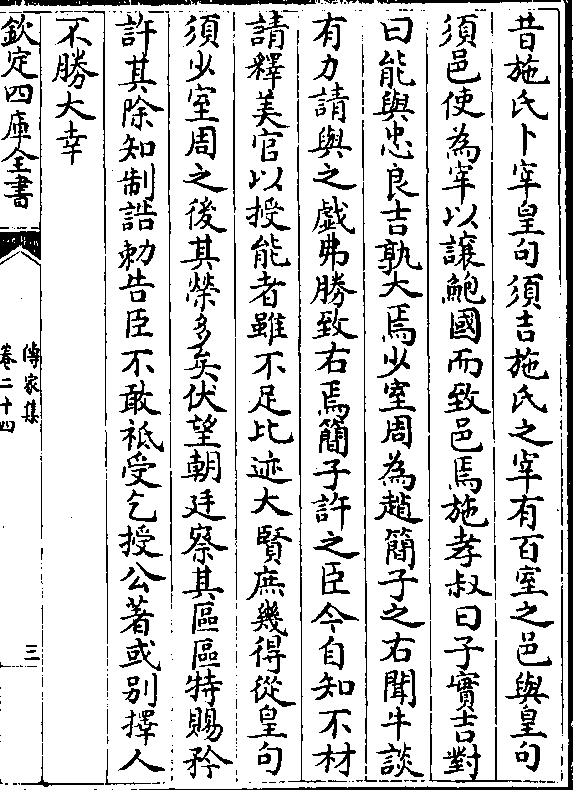 昔施氏卜宰皇句須吉施氏之宰有百室之邑與皇句
須邑使為宰以讓鮑國而致邑焉施孝叔曰子實吉對
曰能與忠良吉孰大焉少室周為趙簡子之右聞牛談
有力請與之戲弗勝致右焉簡子許之臣今自知不材
請釋美官以授能者雖不足比迹大賢庶幾得從皇句
須少室周之後其榮多矣伏望朝廷察其區區特賜矜
許其除知制誥勅告臣不敢祗受乞授公著或別擇人
不勝大幸
欽定四庫全書
傳家集
卷二十四
三